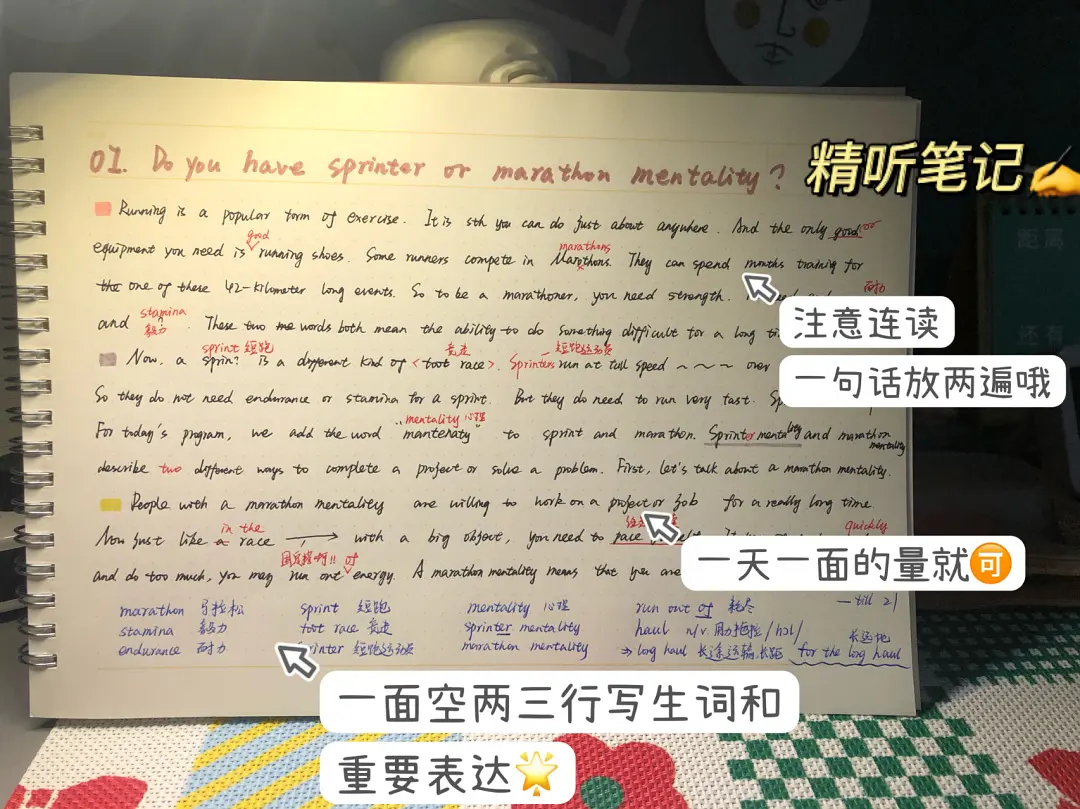 01. Do you have sprinter or marathon mentality?
精听笔记✍
Running is a popular form of exercise. It is sth you can do just about anywhere. And the only good
good
equipment you need is running shoes. Some runners compete in Marothons. They can spend months training for
marathons
the one of these 42-kilometer long events. So to be a marathoner, you need strength.
耐力
and stamina
毅力
These two words both mean the ability to do something difficult for a long
注意连读
sprint 短跑
竞走
短跑运动员
Now, a sprin? is a different kind of <foot race>. Sprinters run at full speed ~~~ over
一句话放两遍哦
So they do not need endurance or stamina for a sprint. But they do need to run very fast.
mentality 心理
For today's program, we add the word "manteraty" to sprint and marathon. Sprinter mentality and marathon mentality
describe two different ways to complete a project or solve a problem. First, let's talk about a marathon mentality.
People with a marathon mentality are willing to work on a project or job for a really long time.
in the
quickly
Now just like a race → with a big object, you need to pace
一天一面的量就可
of
and do too much, you may run out energy. A marathon mentality means that you are
marathon 马拉松 sprint 短跑 mentality 心理 run out of 耗尽 — till 21
stamina 毅力 foot race 竞走 sprinter mentality haul n/v. 用力拖拉 /hɔl/
长远地
endurance 耐力 sprinter 短跑运动员 marathon mentality → long haul 长途运输、长距 for the long haul
一面空两三行写生词和
重要表达🌟